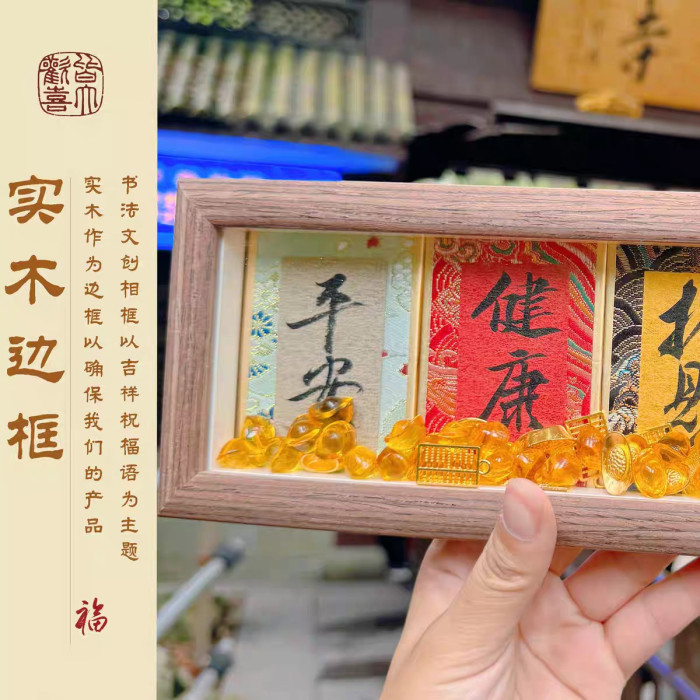 皆大
歡喜
实木边框
书法文创相框以吉祥祝福语为主题
实木作为边框以确保我们的产品
福
平安
健康